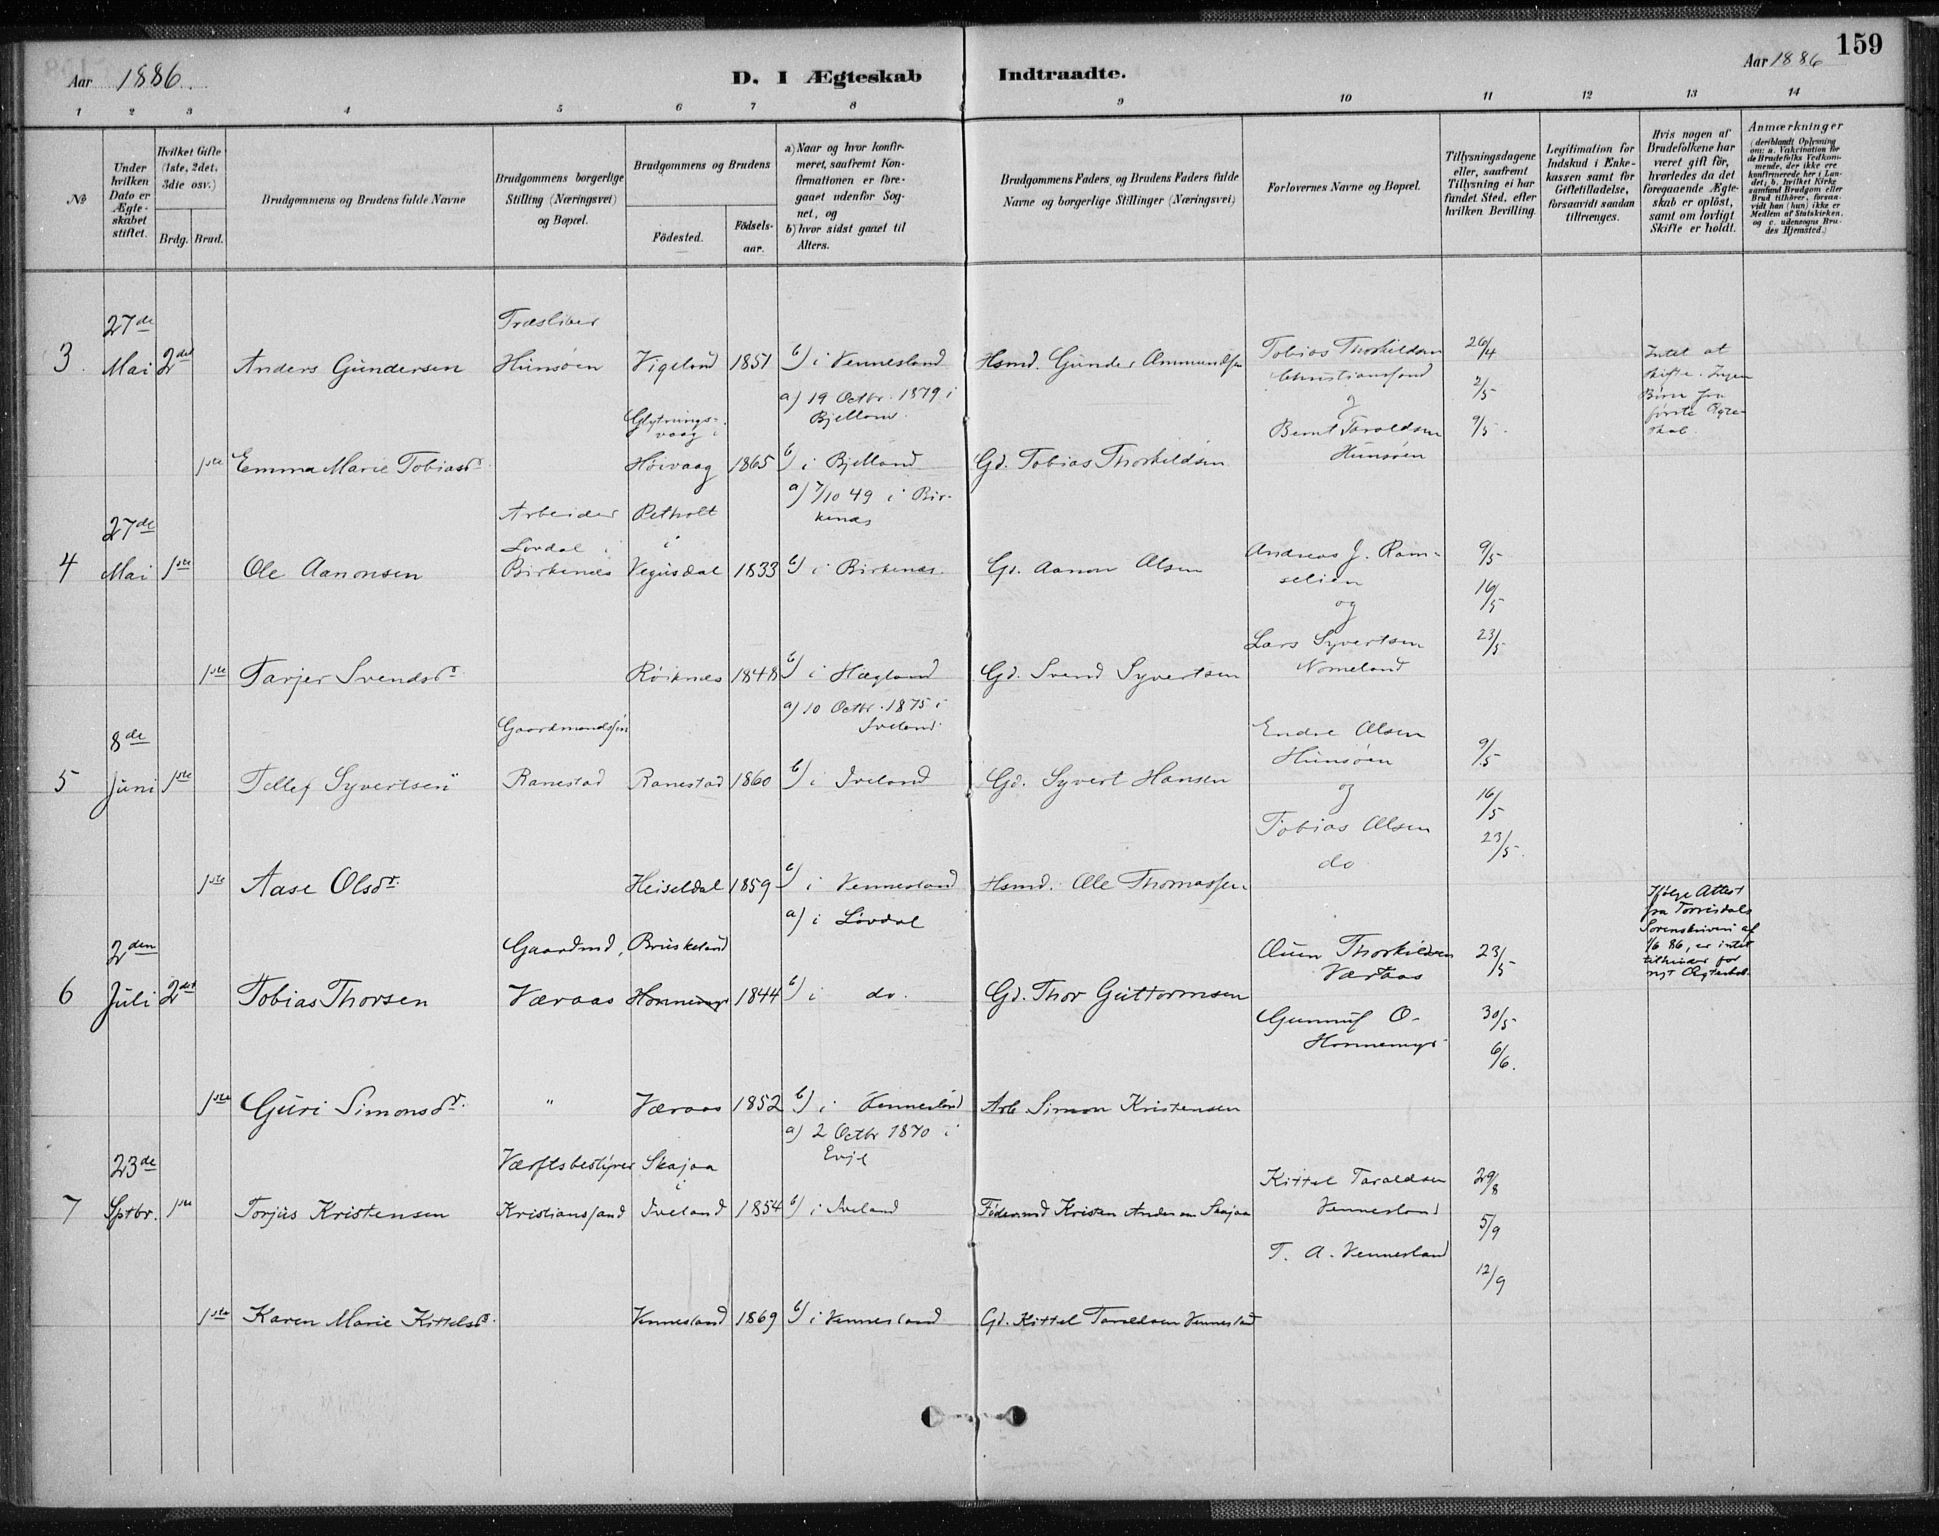 159
Aar 1886.
D. I Ægteskab Indtraadte.
Aar 1886
1 2 3 4 5 6 7 8 9 10 11 12 13 14
№
Under hvilken Dato er Ægteskabet stiftet.
Hvilket Gifte (1ste, 2det, 3die osv.)
Brdg. Brud.
Brudgommens og Brudens fulde Navne
Brudgommens borgerlige Stilling (Næringsvei) og Bopæl.
Brudgommens og Brudens
Fødested.
Fødsels-aar.
a) Naar og hvor konfirmeret, saafremt Konfirmationen er foregaaet udenfor Sognet, og
b) hvor sidst gaaet til Alters.
Brudgommens Faders, og Brudens Faders fulde Navne og borgerlige Stillinger (Næringsvei)
Forlovernes Navne og Bopæl.
Tillysningsdagene eller, saafremt Tillysning ei har fundet Sted, efter hvilken Bevilling.
Legitimation for Indskud i Enkekassen samt for Giftetilladelse, forsaavidt saadan tiltrænges.
Hvis nogen af Brudefolkene har været gift før, hvorledes da det foregaaende Ægteskab er opløst, samt om lovligt Skifte er holdt.
Anmærkninger
(deriblandt Oplysning om: a. Vakcination for de Brudefolks Vedkommende, der ikke ere konfirmerede her i Landet; b. hvilket Kirkesamfund Brudgom eller Brud tilhører, forsaavidt han (hun) ikke er Medlem af Statskirken, og c. udenogns Brudes Hjemsted.)
27de Træsliber
3 Mai 2det Anders Gundersen Hunsøen Vigeland 1851 b) i Vennesland Hsmd. Gunder Ammundsen Tobias Thorkildsen 26/4 Intet at
a) 19 Octbr. 1879 i Bjelland. Christianssand 2/5 skifte. Ingen
og Børn fra
Bernt Taraldsen 9/5. første Ægte-
Hunsøen skab.
1ste Emma Marie Tobiasdr Høivaag 1865 b) i Bjelland Gd. Tobias Thorkildsen
a) 7/10 49 i Birkenæs
27de Arbeider Retholt
Løvdal i i
4 Mai 1ste Ole Aanonsen Birkenæs Vegusdal 1833 b) i Birkenæs. Gd. Aanon Olsen Andreas J. Ramselien 9/5
og 16/5
Lars Syvertsen 23/5
Nomeland
1ste Tarjer Svendsdr. Røiknæs 1848 b) i Hægland Gd. Svend Syvertsen
a) 10 Octbr. 1875 i Iveland.
8de Gaardmandssøn Endre Olsen
5 Juni 1ste Tellef Syvertsen Ranestad Ranestad 1860 b) i Iveland Gd. Syvert Hansen Hunsøen 9/5
og 16/5
Tobias Olsen 23/5.
do
1ste Aase Olsdr. Heiseldal 1859 b) i Vennesland Hsmd. Ole Thomassen
a) i Løvdal
2den Gaardmd, Bruskeland
6 Juli 2det Tobias Thorsen Væraas Honnemyr 1844 b) i do. Gd. Thor Guttormsen Aum Thorkildsen 23/5 Ifølge Attest
Væraas fra Torrisdals
Gunnuf O. 30/5 Sorenskriveri af
Honnemyr 6/6. 1/6 86, er intet
tilhinder for
nyt Ægteskab.
1ste Guri Simonsdr. " Væraas 1852 b) i Vennesland Arb Simon Kristensen
a) 2 Octbr 1870 i Evje
23de Værftsbestyrer Skajaa
i
7 Sptbr. 1ste Torjus Kristensen Kristianssand Iveland 1854 b) i Iveland Fødermd Kristen Andersen Skajaa Kittel Taraldsen 29/8
Vennesland 5/9
T. A. Vennesland
12/9
1ste Karen Marie Kittelsdr. Vennesland 1869 b) i Vennesland Gd. Kittel Taraldsen Vennesland